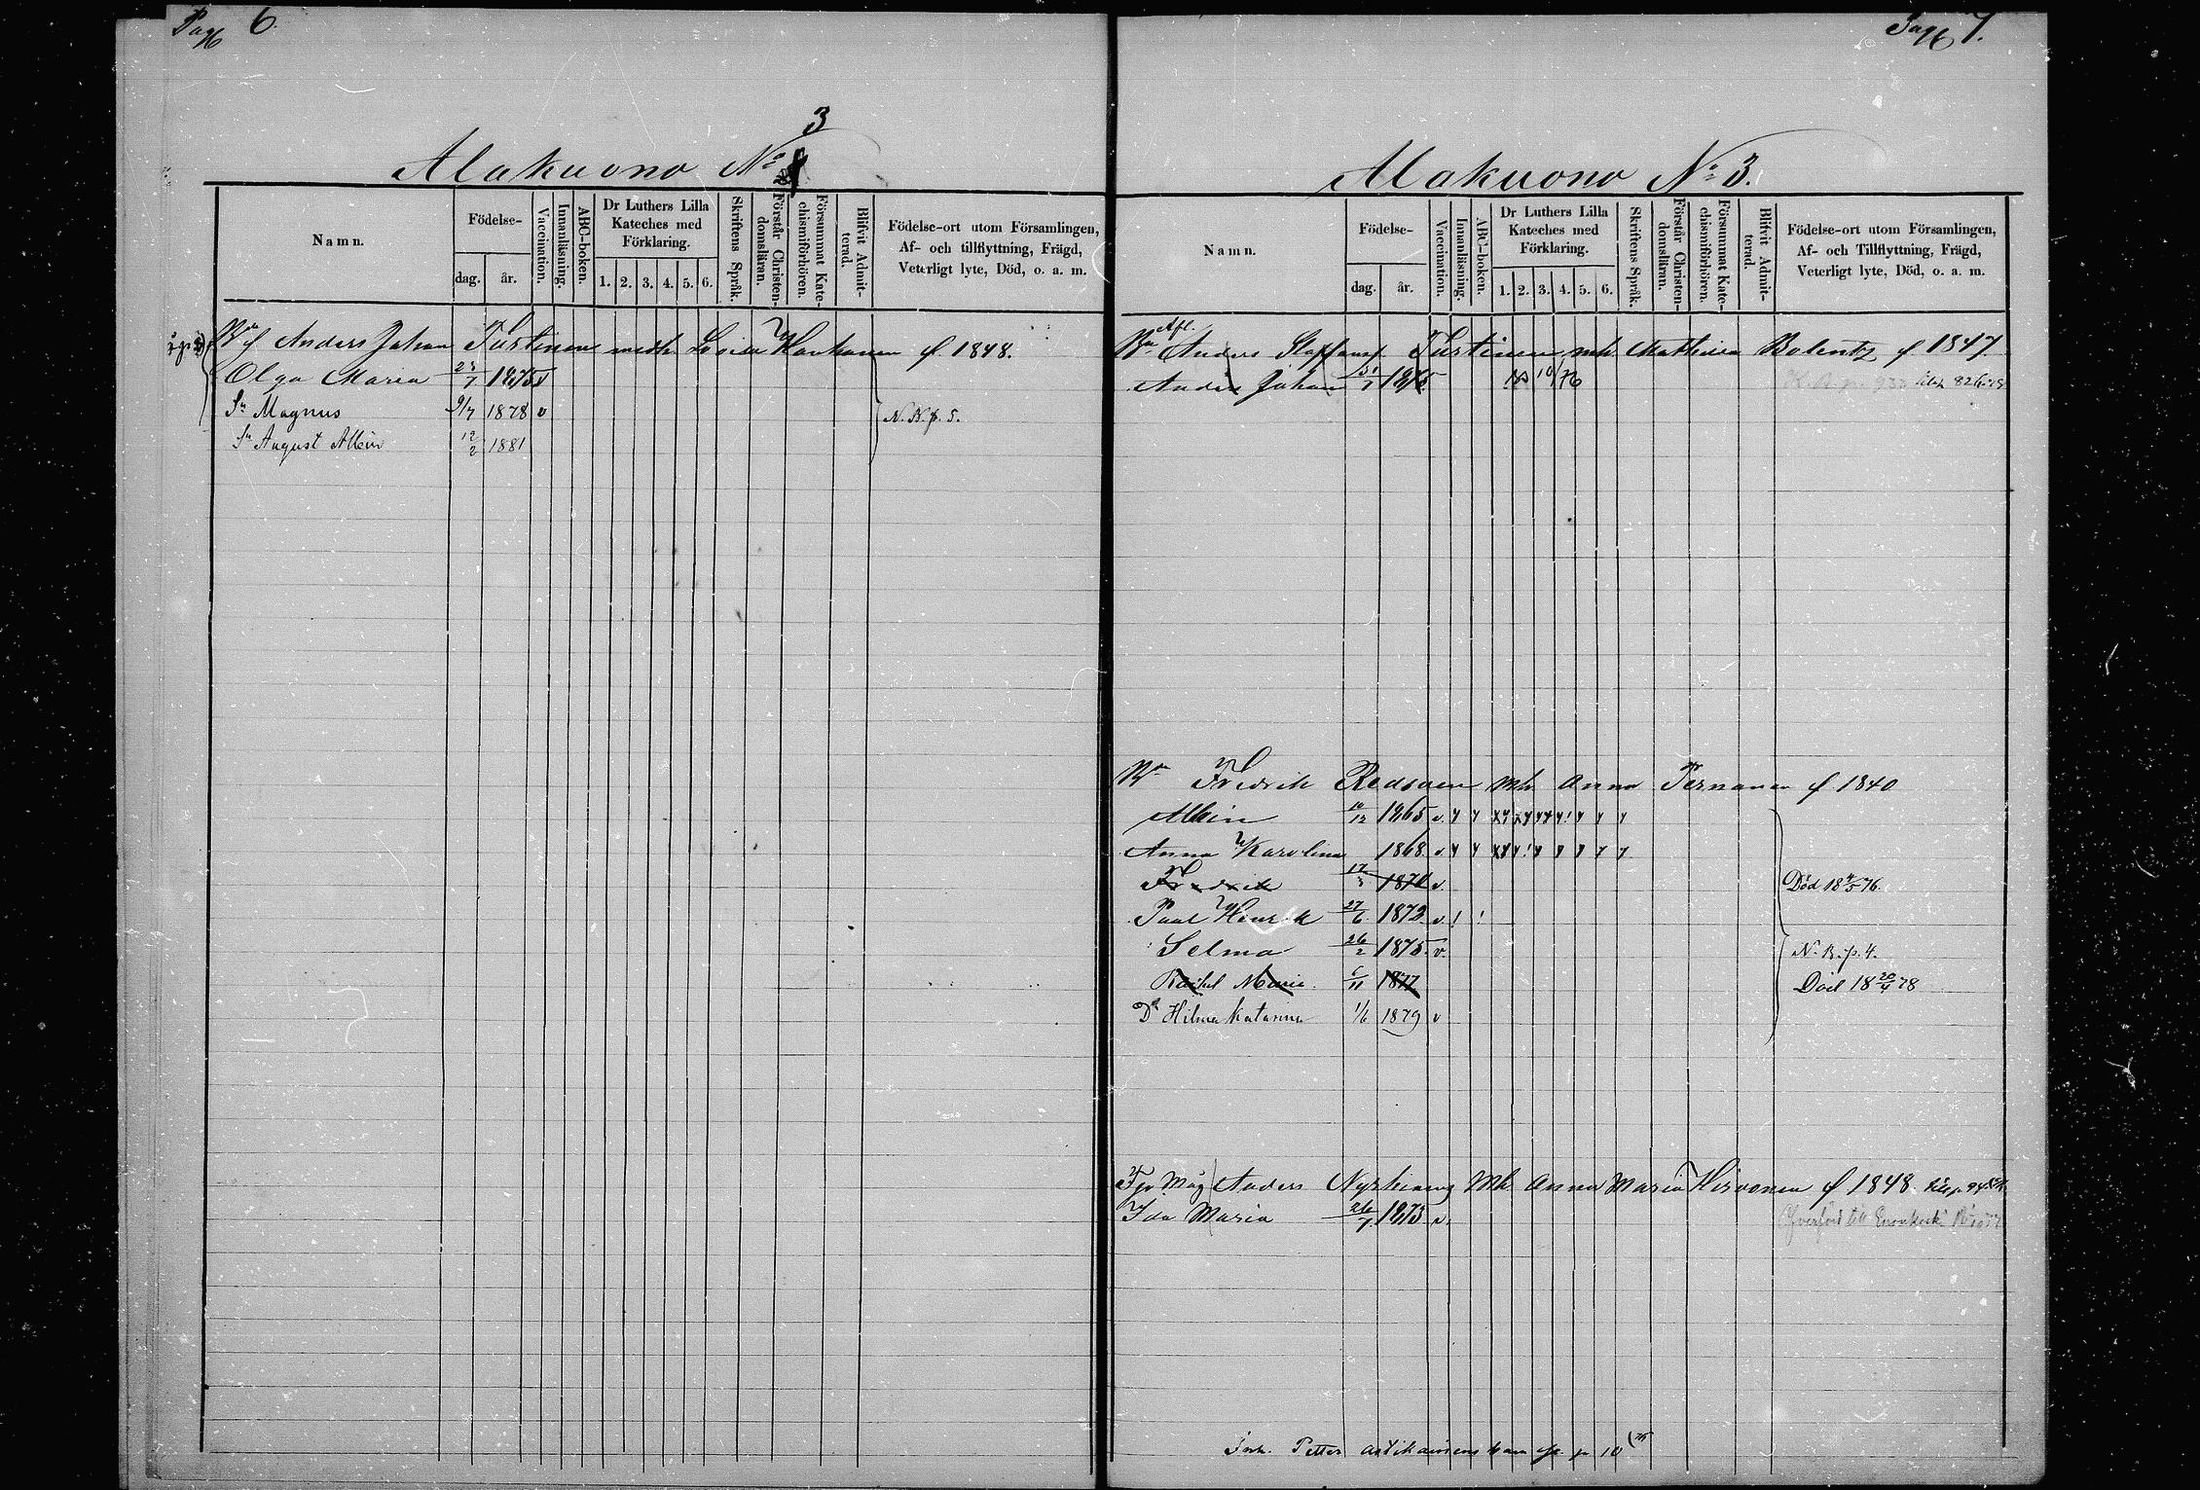 Pag 6.
Alakuono No 3
Namn.
Födelse-
dag.
år.
Vaccination.
Innanläsning.
ABC-boken.
Dr Luthers Lilla
Kateches med
Förklaring.
1. 2. 3. 4. 5. 6.
Skriftens Språk.
Förstår Christen-
domsläran.
Försummat Kate-
chismiförhören.
Blifvit Admit-
terad.
Födelse-ort utom Församlingen,
Af- och tillflyttning, Frägd,
Veterligt lyte, Död, o. a. m.
Anders Johan Lovisa f. 1848.
Olga Maria 1875 v
Sn Magnus 9/7 1878 v
N. B. p. 5.
Sn August Albin 12/2 1881
Pag 7.
Alakuono No 3.
Namn.
Födelse-
dag.
år.
Vaccination.
Innanläsning.
ABC-boken.
Dr Luthers Lilla
Kateches med
Förklaring.
1. 2. 3. 4. 5. 6.
Skriftens Språk.
Förstår Christen-
domsläran.
Försummat Kate-
chismiförhören.
Blifvit Admit-
terad.
Födelse-ort utom Församlingen,
Af- och Tillflyttning, Frägd,
Veterligt lyte, Död, o. a. m.
Afl.
Anders mh f 1847
Anders Johan
Fredrik Redsven mh Anna Pernanen f 1840
Albin 1865 v.
Anna Karolina 1868 v
Fredrik 1870 v. Död 18 4/5 76.
Paul Henrik 27/6 1873 v
Selma 26/2 1875 v. N. B. p. 4.
Rachel Maria 6/11 1877 Död 18 20/4 78
Dr Hilma Katarina 1/6 1879 v
Anders Mh Anna Maria Hirvonen f 1848
Ida Maria 26/7 1873 v.
Petter